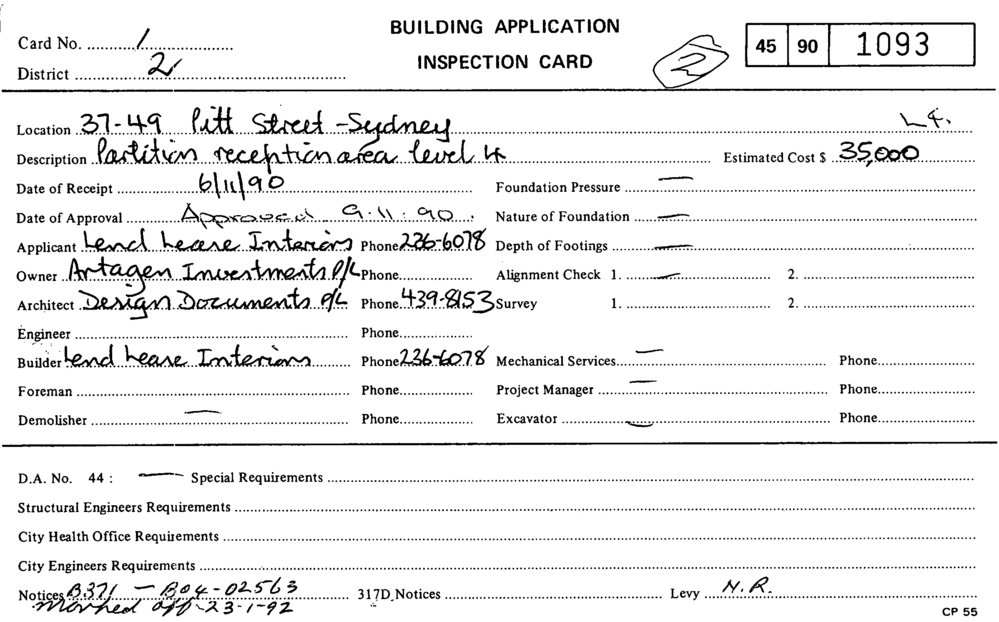 BUILDING APPLICATION
INSPECTION CARD
Card No. 1
District 2
2
45 90 1093
L4.
Location 37-49 Pitt Street - Sydney
Description Partition reception area level 4 Estimated Cost $ 35,000
Date of Receipt 6/11/90 Foundation Pressure —
Date of Approval Approved 9.11.90. Nature of Foundation —
Applicant Lend Lease Interiors Phone 236-6078 Depth of Footings —
Owner Artagen Investments P/L Phone Alignment Check 1. — 2.
Architect Design Documents P/L Phone 439-8153 Survey 1. 2.
Engineer Phone
Builder Lend Lease Interiors Phone 236-6078 Mechanical Services — Phone
Foreman Phone Project Manager — Phone
Demolisher — Phone Excavator — Phone
D.A. No. 44 : — Special Requirements
Structural Engineers Requirements
City Health Office Requirements
City Engineers Requirements
Notices B371 — B04-02563 317D Notices Levy N.R.
Marked off 23-1-92
CP 55